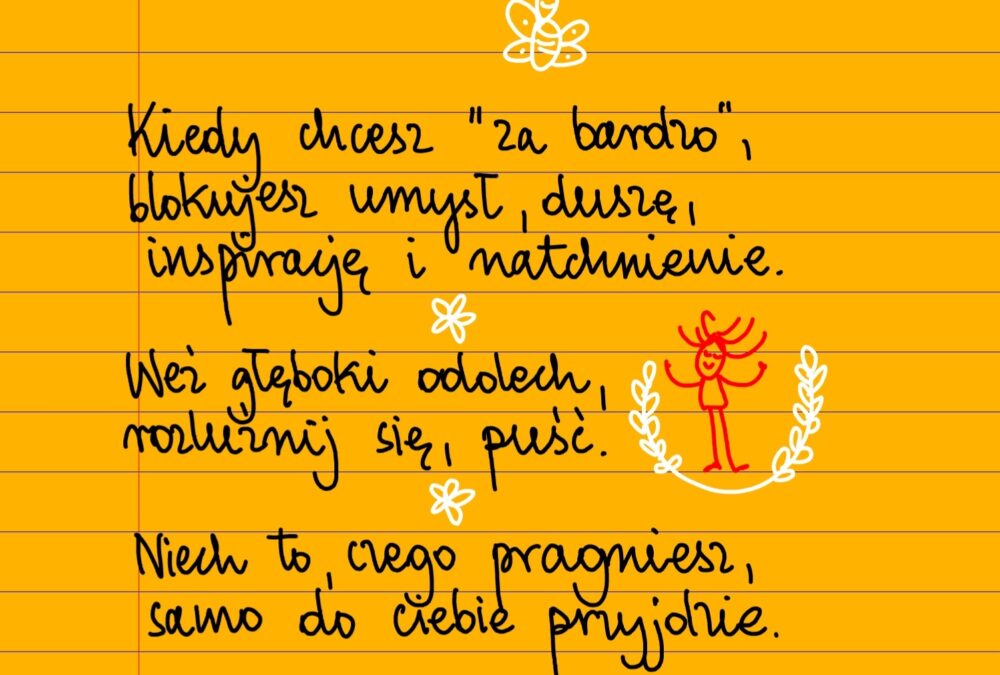 Kiedy chcesz "za bardzo",
blokujesz umysł, duszę,
inspirację i natchnienie.
Weź głęboki oddech,
rozluźnij się, puść.
Niech to, czego pragniesz,
samo do ciebie przyjdzie.